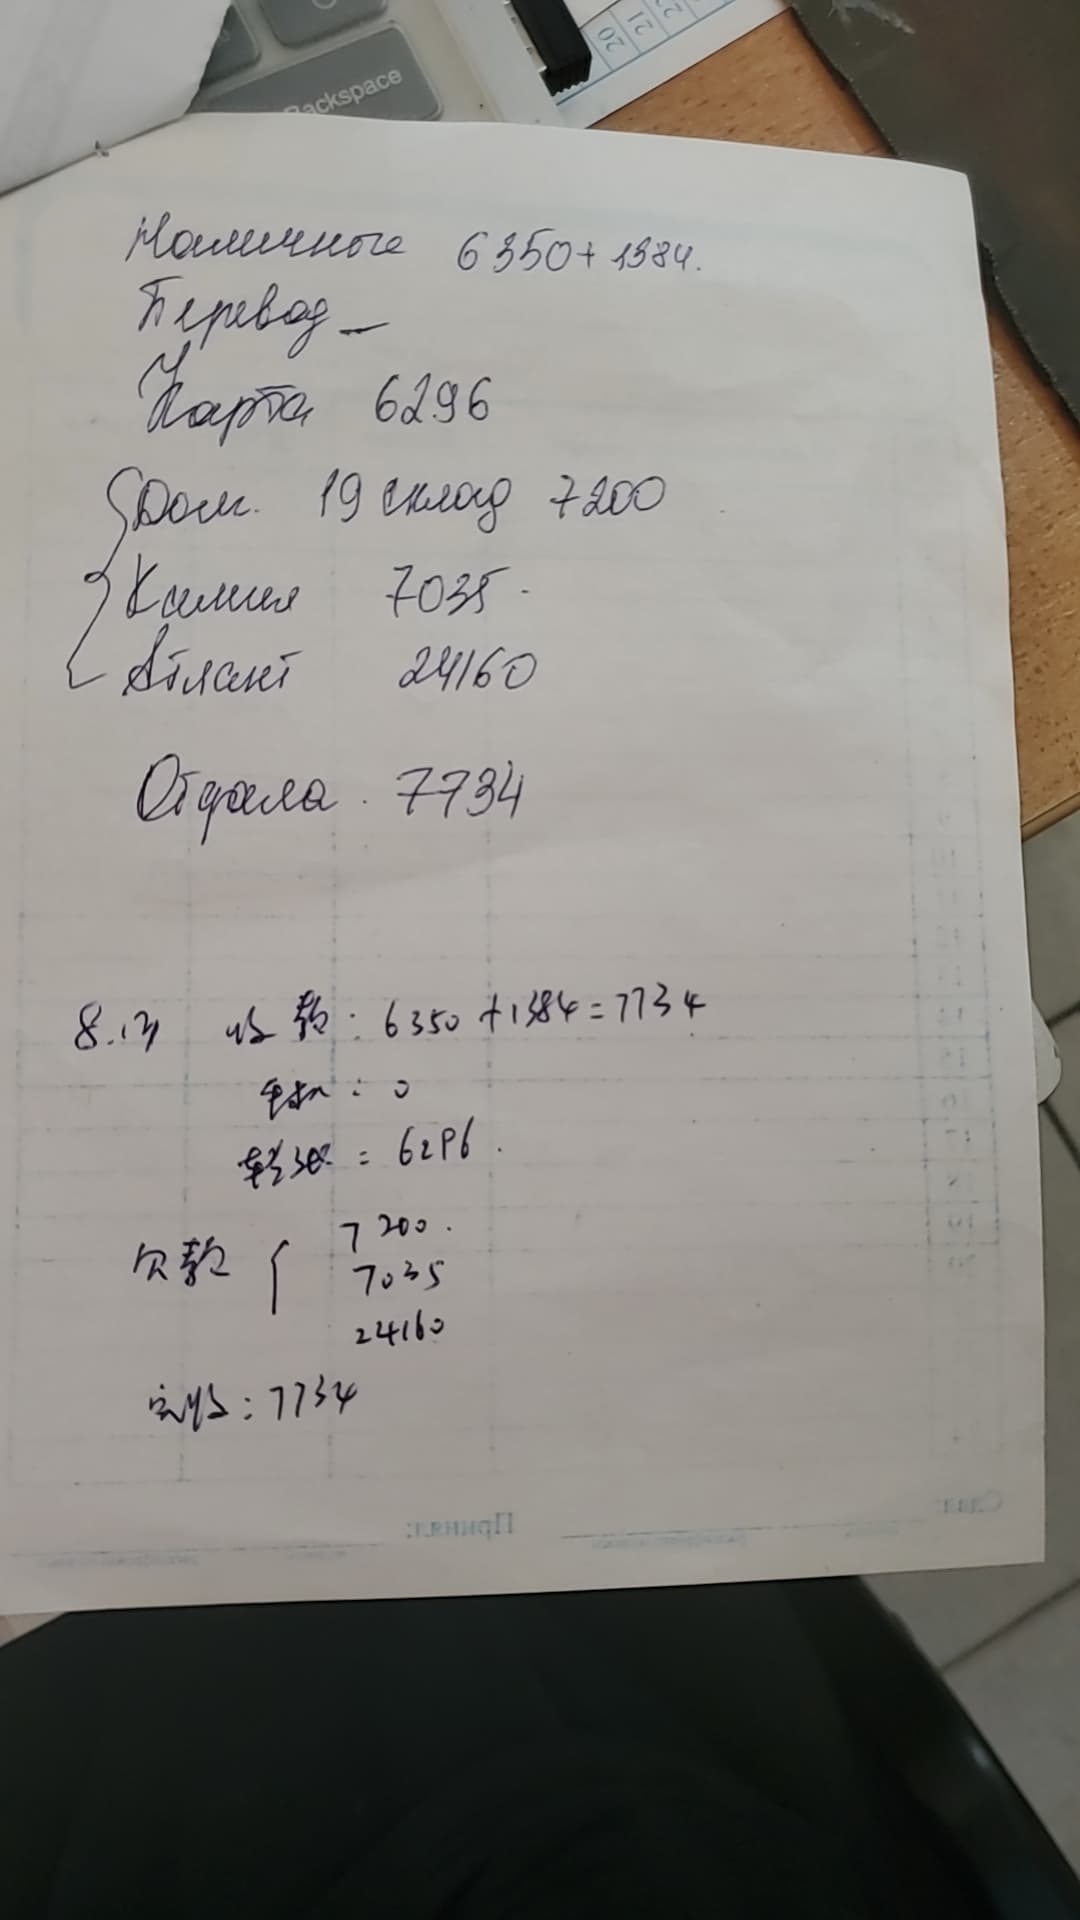 Backspace
20 21 22
Наличные 6350+1384.
Перевод –
Карта 6296
Дом. 19 склад 7200
Химия 7035.
Атлант 24160
Отдала. 7734
8.13 收款: 6350+1384=7734
: 0
转账: 6296.
欠款 { 7200.
7035
24160
实收: 7734
Принял:
Сдал: